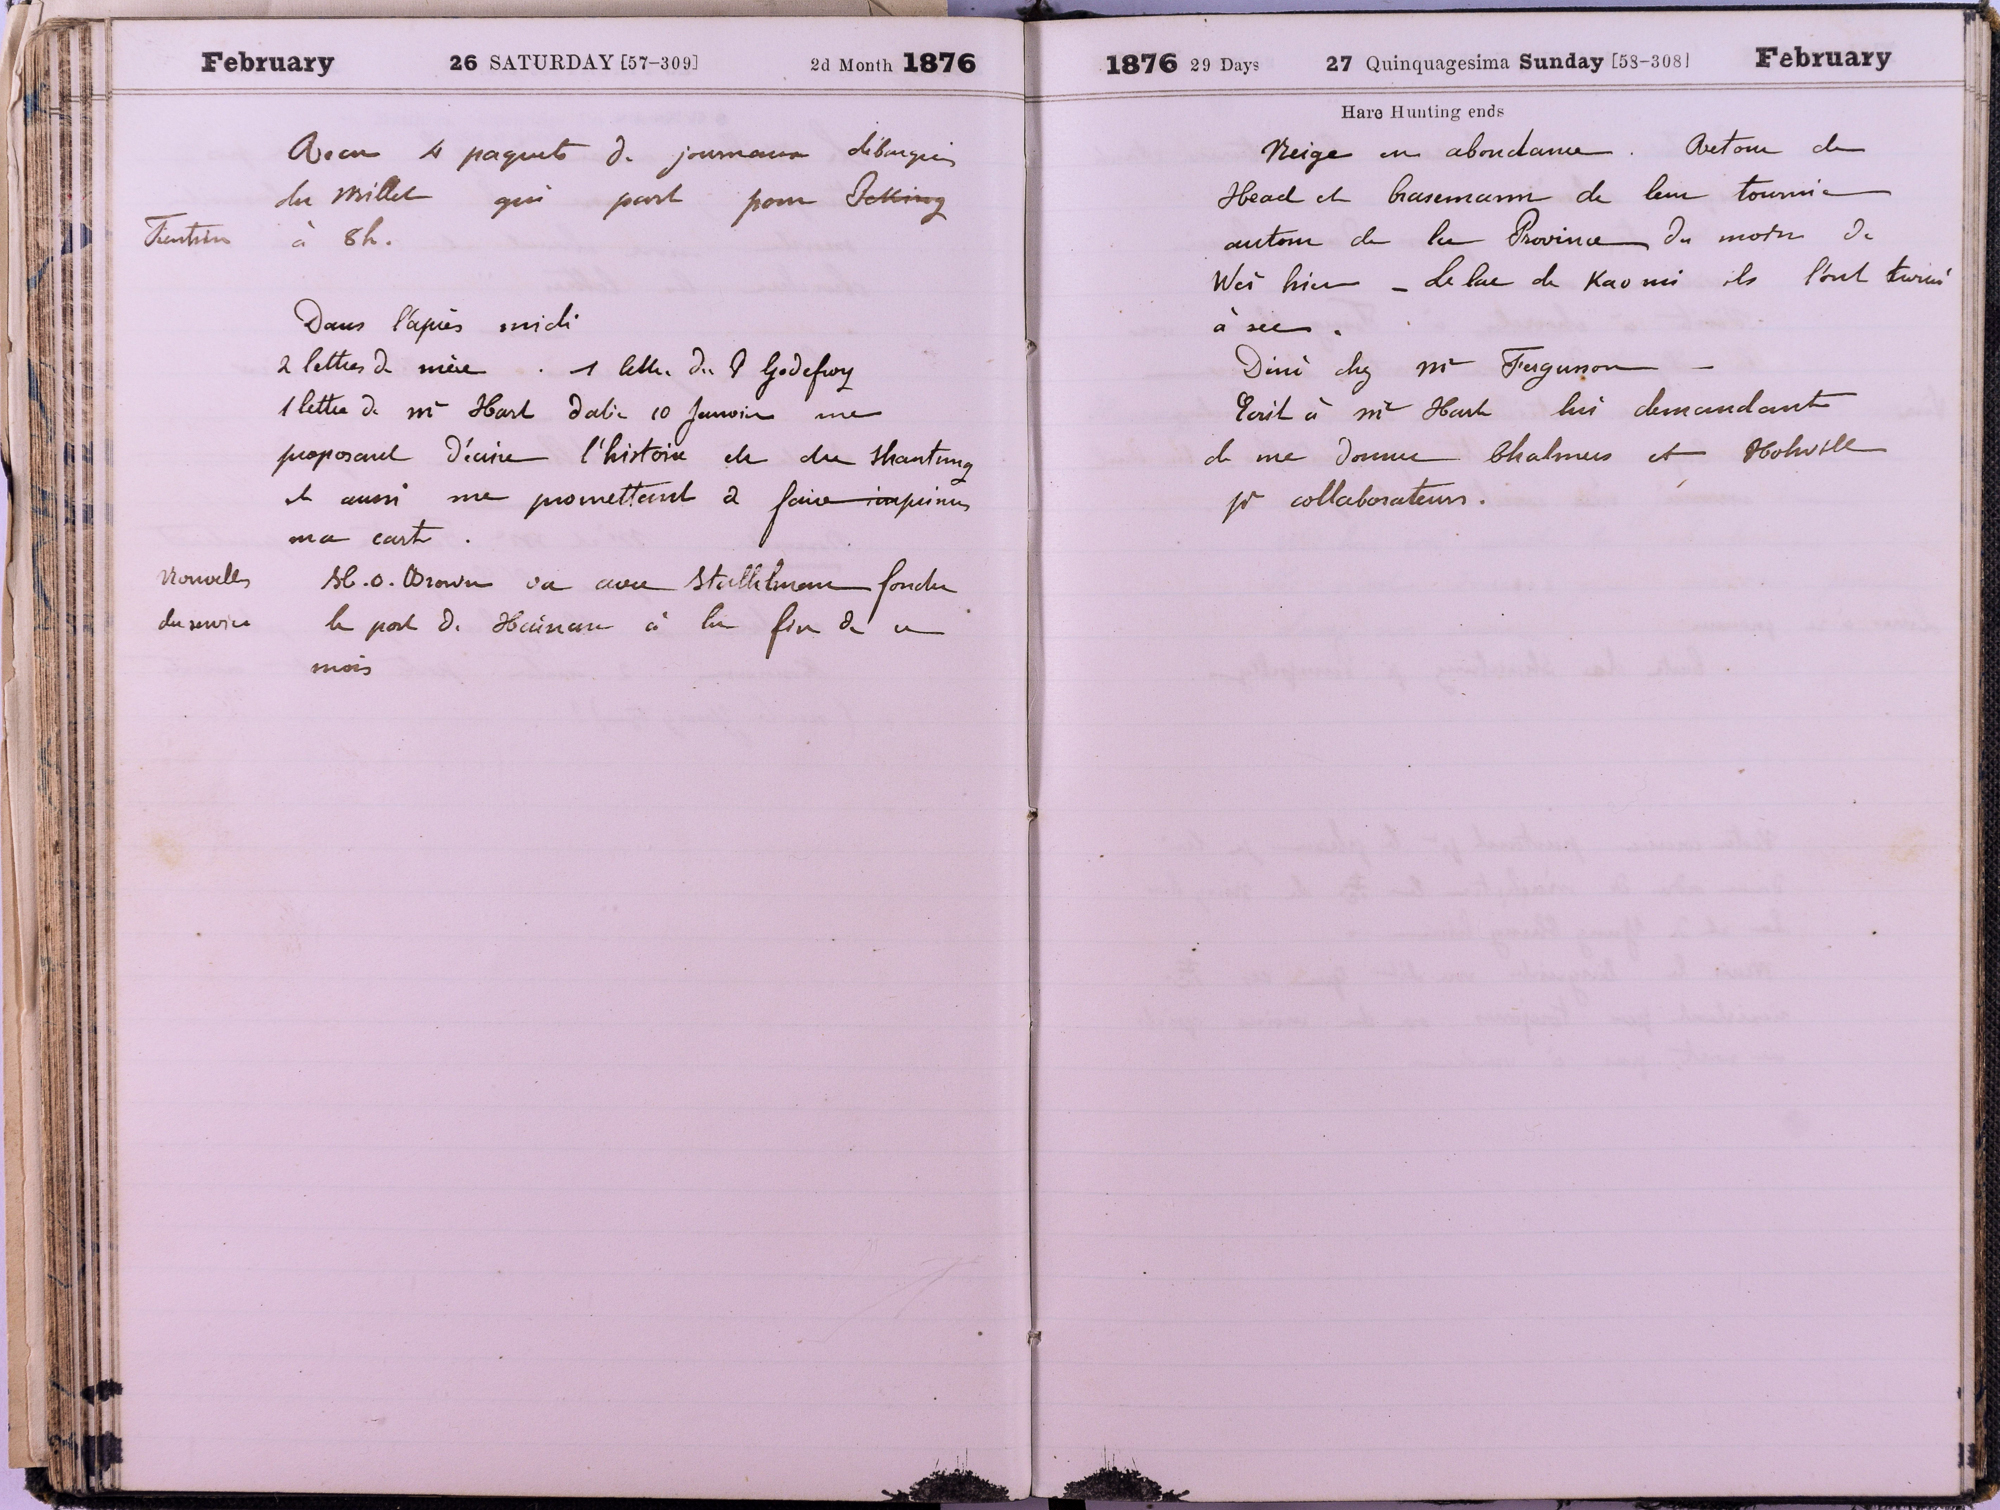 February 26 SATURDAY [57-309] 2d Month 1876
Recu 4 paquets de journaux débarqués
du Millet qui part pour Peking
Tientsin à 8h.
Dans l'après midi
2 lettres de mère . 1 lettre du P Godefroy
1 lettre de Mr Hart datée 10 Janvier me
proposant d'écrire l'histoire de du Shantung
et aussi me promettant de faire imprimer
ma carte .
Nouvelles H.O. Brown va avec Stuhlmann fonder
du service le port de Hainan à la fin de ce
mois
1876 29 Days 27 Quinquagesima Sunday [58-308] February
Hare Hunting ends
Neige en abondance . Retour de
Head et de leur tournée
autour de la Province du moins de
Wei hien _ Le lac de Kaomi ils l'ont trouvé
à sec .
Diné chez Mr Fergusson _
Ecrit à Mr Hart lui demandant
de me donner Chalmers et Holwill
pr collaborateurs .